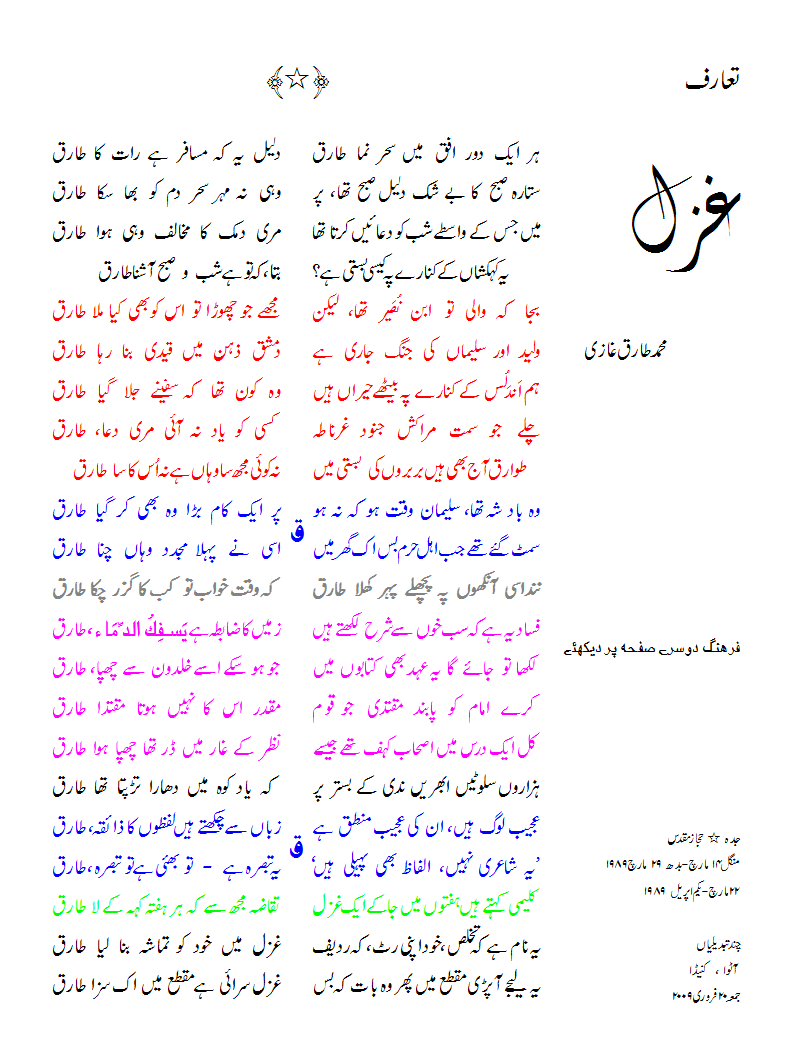 تعارف
غزل
محمد طارق غازی
ہر ایک دور افق میں سحر نما طارق دلیل یہ کہ مسافر ہے رات کا طارق
ستارہ صبح کا بے شک دلیل صبح تھا، پر وہی نہ مہر سحر دم کو بھا سکا طارق
میں جس کے واسطے شب کو دعائیں کرتا تھا مری دمک کا مخالف وہی ہوا طارق
یہ کہکشاں کے کنارے پہ کیسی بستی ہے؟ بتا، کہ تو ہے شب و صبح آشنا طارق
بجا کہ والی تو ابن نُصَیر تھا، لیکن مجھے جو چھوڑا تو اس کو بھی کیا ملا طارق
ولید اور سلیماں کی جنگ جاری ہے دمشق ذہن میں قیدی بنا رہا طارق
ہم اَندَلُس کے کنارے پہ بیٹھے حیراں ہیں وہ کون تھا کہ سفینے جلا گیا طارق
چلے جو سمت مراکش جنود غرناطہ کسی کو یاد نہ آئی مری دعا، طارق
طوارق آج بھی ہیں بربروں کی بستی میں نہ کوئی مجھ سا وہاں ہے نہ اُس کا سا طارق
وہ باد شہ تھا، سلیمان وقت ہو کہ نہ ہو پر ایک کام بڑا وہ بھی کر گیا طارق
ق
سمٹ گئے تھے جب اہل حرم بس اک گھر میں اسی نے پہلا مجدد وہاں چنا طارق
ننداسی آنکھوں پہ پچھلے پہر کھلا طارق کہ وقت خواب تو کب کا گزر چکا طارق
فساد یہ ہے کہ سب خوں سے شرح لکھتے ہیں زمیں کا ضابطہ ہے یَسفِکُ الدِّمَاء، طارق
لکھا تو جائے گا یہ عہد بھی کتابوں میں جو ہو سکے اسے خلدون سے چھپا، طارق
کرے امام کو پابند مقتدی جو قوم مقدر اس کا نہیں ہوتا مقتدا طارق
کل ایک درس میں اصحاب کہف تھے جیسے نظر کے غار میں ڈر تھا چھپا ہوا طارق
ہزاروں سلوٹیں ابھریں ندی کے بستر پر کہ یاد کوہ میں دھارا تڑپتا تھا طارق
عجیب لوگ ہیں، ان کی عجیب منطق ہے زباں سے چکھتے ہیں لفظوں کا ذائقہ، طارق
ق
’یہ شاعری نہیں، الفاظ بھی پہیلی ہیں‘ یہ تبصرہ ہے - تو بھئی ہے تو تبصرہ، طارق
کلیمی کہتے ہیں ہفتوں میں جا کے ایک غزل تقاضہ مجھ سے کہ ہر ہفتہ کہہ کے لا طارق
یہ نام ہے کہ تخلص، خود اپنی رٹ، کہ ردیف غزل میں خود کو تماشہ بنا لیا طارق
یہ لیجے آ پڑی مقطع میں پھر وہ بات کہ بس غزل سرائی ہے مقطع میں اک سزا طارق
فرہنگ دوسرے صفحہ پر دیکھئے
جدہ ☆ حجاز مقدس
منگل ۱۴ مارچ - بدھ ۲۹ مارچ ۱۹۸۹
۲۲ مارچ - یکم اپریل ۱۹۸۹
چند تبدیلیاں
آٹوا ، کنیڈا
جمعہ ۲۰ فروری ۲۰۰۹